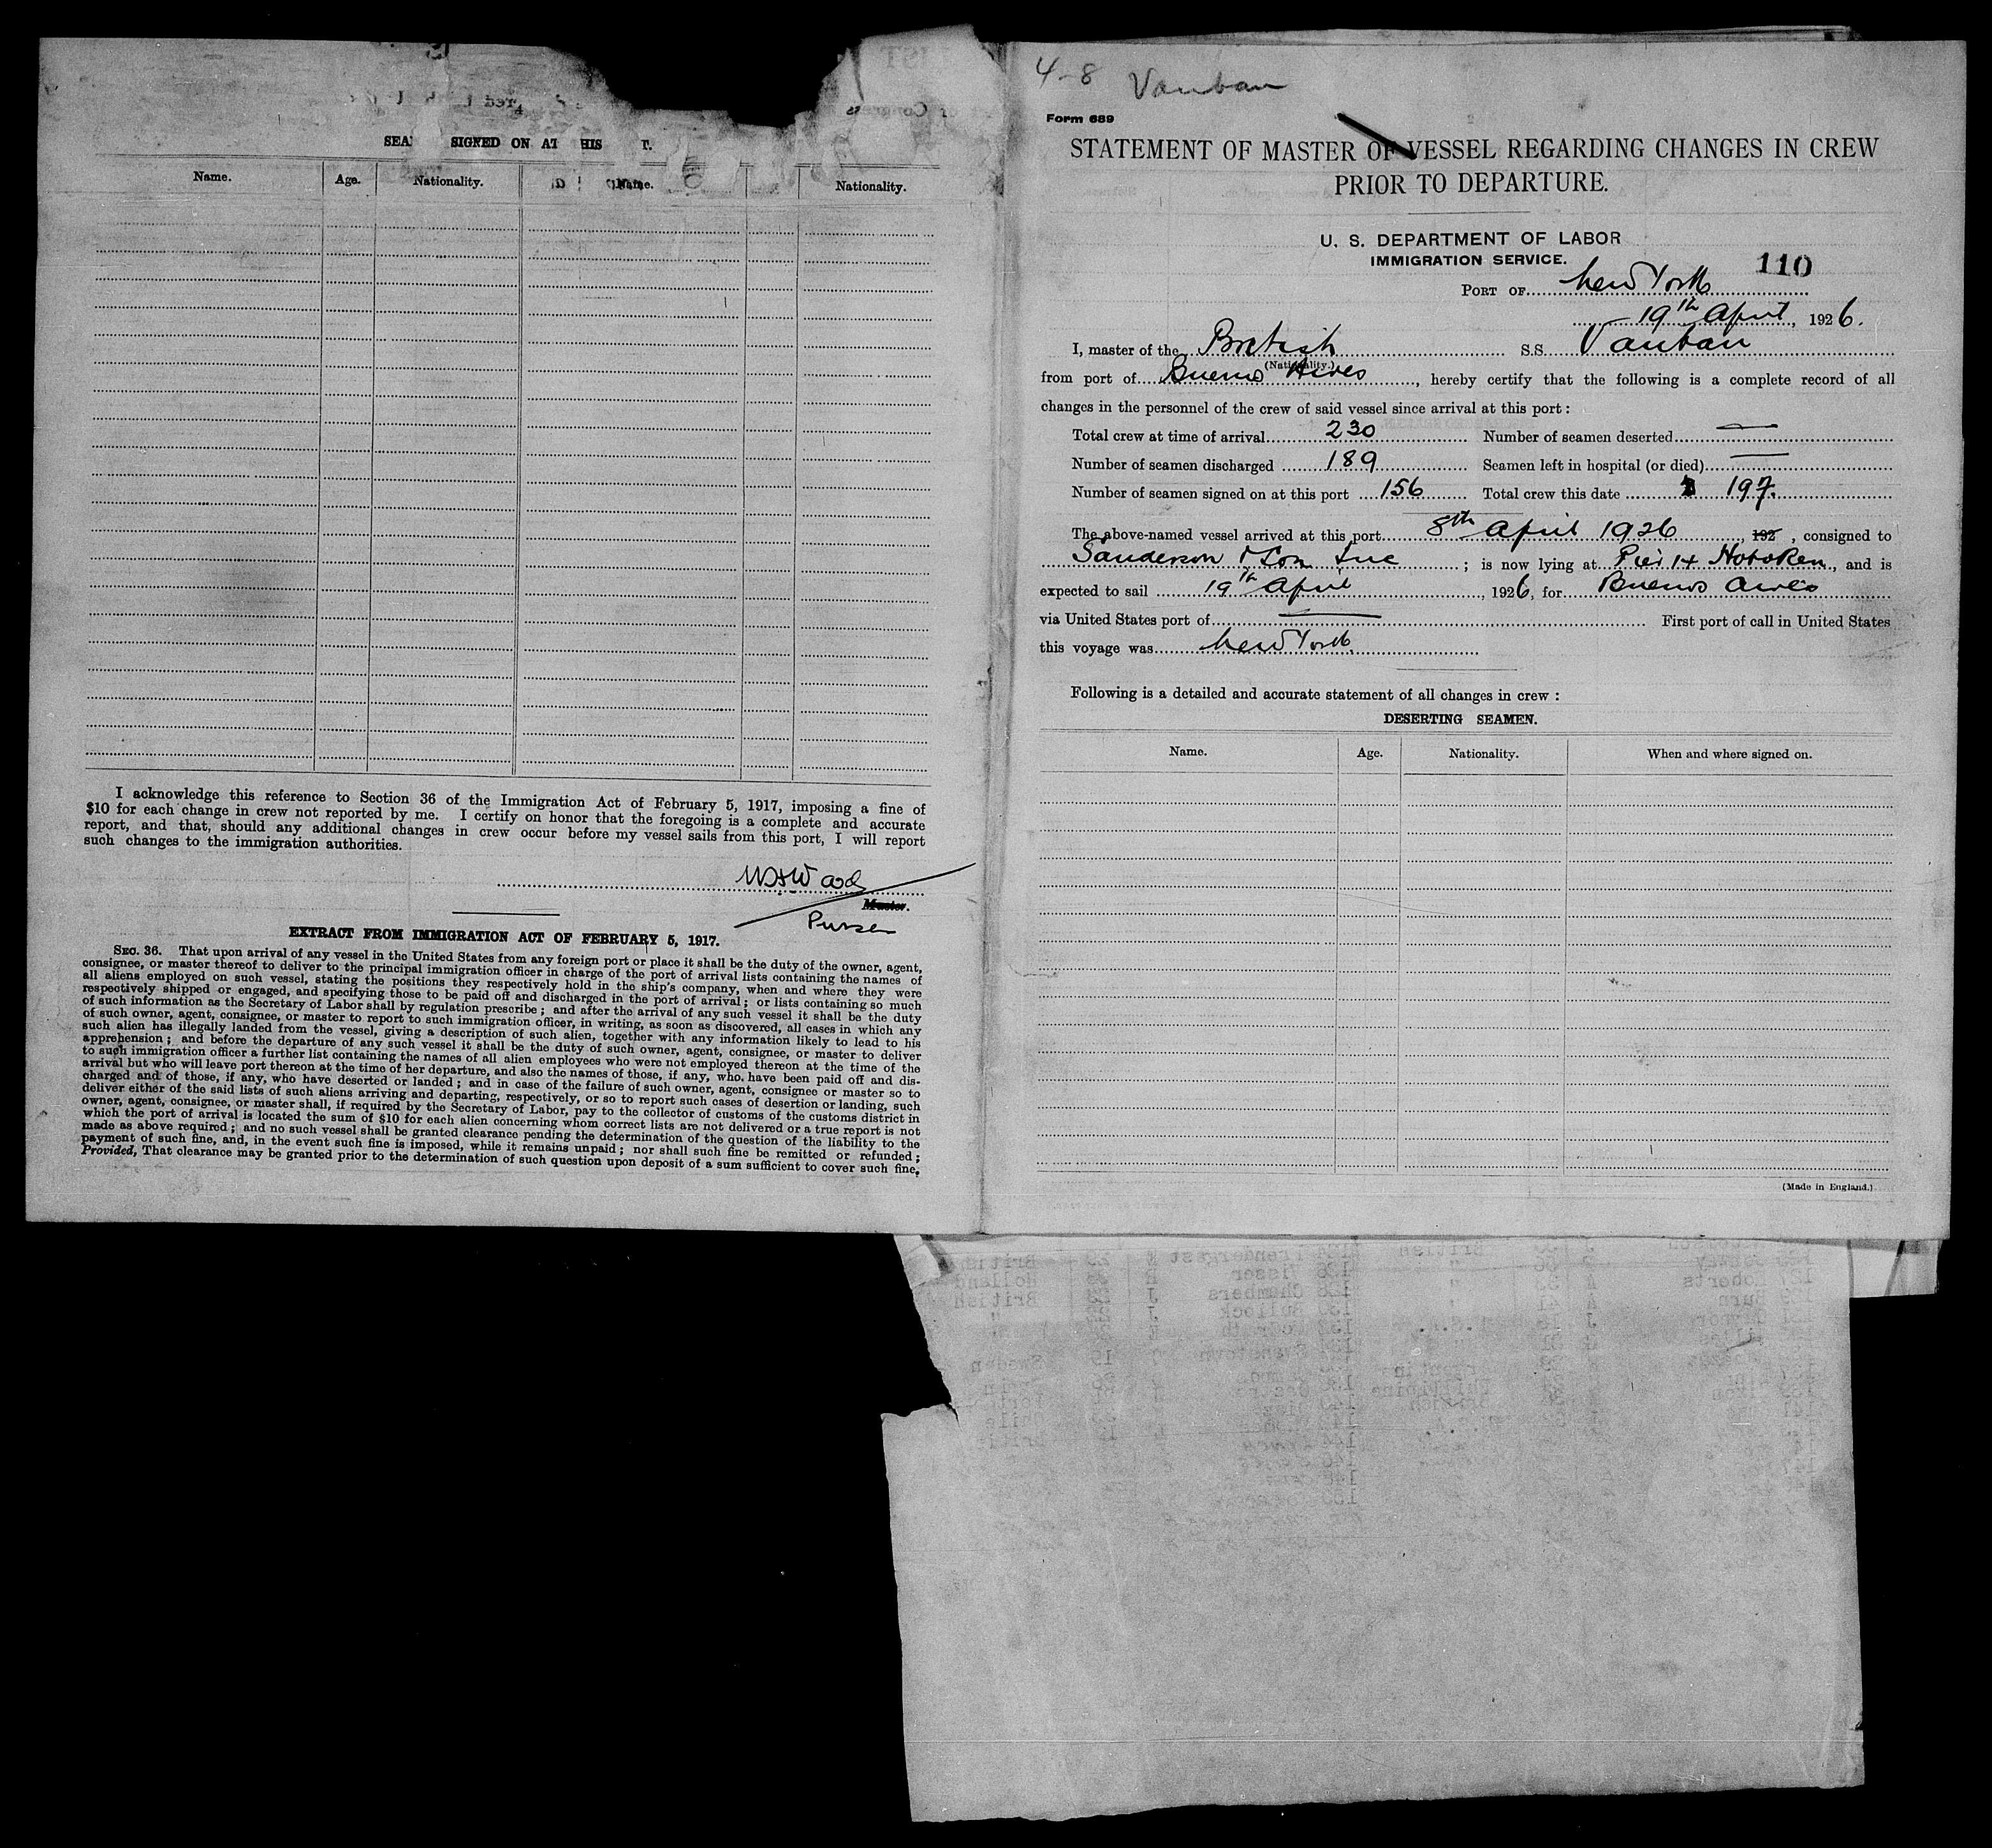 SEA SIGNED ON AT HIS T.
Name. Age. Nationality. Name. Nationality.
I acknowledge this reference to Section 36 of the Immigration Act of February 5, 1917, imposing a fine of
$10 for each change in crew not reported by me. I certify on honor that the foregoing is a complete and accurate
report, and that, should any additional changes in crew occur before my vessel sails from this port, I will report
such changes to the immigration authorities.
Ward
Master.
Purser
EXTRACT FROM IMMIGRATION ACT OF FEBRUARY 5, 1917.
SEC. 36. That upon arrival of any vessel in the United States from any foreign port or place it shall be the duty of the owner, agent,
consignee, or master thereof to deliver to the principal immigration officer in charge of the port of arrival lists containing the names of
all aliens employed on such vessel, stating the positions they respectively hold in the ship's company, when and where they were
respectively shipped or engaged, and specifying those to be paid off and discharged in the port of arrival; or lists containing so much
of such information as the Secretary of Labor shall by regulation prescribe; and after the arrival of any such vessel it shall be the duty
of such owner, agent, consignee, or master to report to such immigration officer, in writing, as soon as discovered, all cases in which any
such alien has illegally landed from the vessel, giving a description of such alien, together with any information likely to lead to his
apprehension; and before the departure of any such vessel it shall be the duty of such owner, agent, consignee, or master to deliver
to such immigration officer a further list containing the names of all alien employees who were not employed thereon at the time of the
arrival but who will leave port thereon at the time of her departure, and also the names of those, if any, who have been paid off and dis-
charged and of those, if any, who have deserted or landed; and in case of the failure of such owner, agent, consignee or master so to
deliver either of the said lists of such aliens arriving and departing, respectively, or so to report such cases of desertion or landing, such
owner, agent, consignee, or master shall, if required by the Secretary of Labor, pay to the collector of customs of the customs district in
which the port of arrival is located the sum of $10 for each alien concerning whom correct lists are not delivered or a true report is not
made as above required; and no such vessel shall be granted clearance pending the determination of the question of the liability to the
payment of such fine, and, in the event such fine is imposed, while it remains unpaid; nor shall such fine be remitted or refunded;
Provided, That clearance may be granted prior to the determination of such question upon deposit of a sum sufficient to cover such fine.
4-8 Vauban
Form 689
STATEMENT OF MASTER OF VESSEL REGARDING CHANGES IN CREW
PRIOR TO DEPARTURE.
U. S. DEPARTMENT OF LABOR
IMMIGRATION SERVICE.
110
PORT OF New York
19th April, 1926.
I, master of the British S.S. Vauban
(Nationality.)
from port of Buenos Aires, hereby certify that the following is a complete record of all
changes in the personnel of the crew of said vessel since arrival at this port:
Total crew at time of arrival 230 Number of seamen deserted —
Number of seamen discharged 189 Seamen left in hospital (or died) —
Number of seamen signed on at this port 156 Total crew this date 197.
The above-named vessel arrived at this port 8th April 1926, 192 , consigned to
Sanderson & Son Inc; is now lying at Pier 14 Hoboken, and is
expected to sail 19th April, 1926, for Buenos Aires
via United States port of — First port of call in United States
this voyage was New York
Following is a detailed and accurate statement of all changes in crew:
DESERTING SEAMEN.
Name. Age. Nationality. When and where signed on.
(Made in England.)